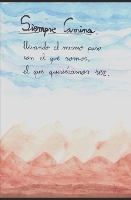 Siempre Camina
llevando el mismo paso
con el que somos,
el que quisiéramos ser.